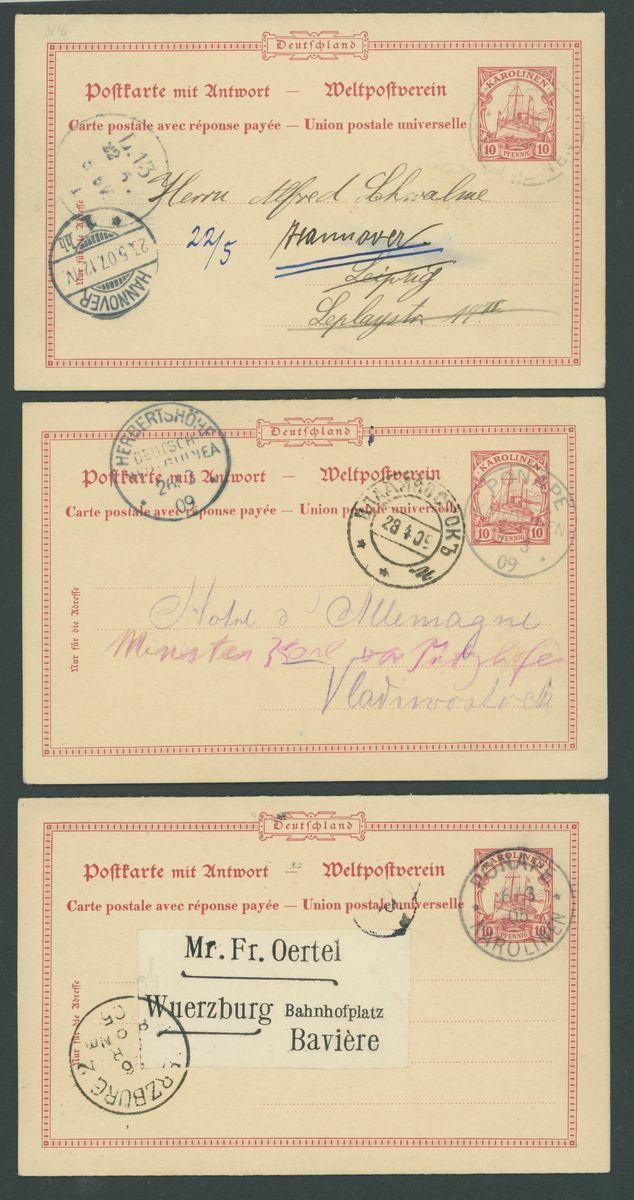 Deutschland
Postkarte mit Antwort — Weltpostverein
Carte postale avec réponse payée — Union postale universelle
KAROLINEN
10 PFENNIG 10
L.13
22 5
Herrn Alfred Schwalme
22/5 Hannover
Leipzig
Nur für die Adresse
HANNOVER
1 hh
23.5.07.12-1V.
Deutschland
HERBERTSHÖHE
DEUTSCH-
NEU-GUINEA
26/3
09
Postkarte mit Antwort — Weltpostverein
Carte postale avec réponse payée — Union postale universelle
KAROLINEN
10 PFENNIG 10
PONAPE
09
ВЛАДИВОСТОКЪ
28 4 09
Nur für die Adresse
Hotel d'Allemagne
Vladiwostock
Deutschland
Postkarte mit Antwort — Weltpostverein
Carte postale avec réponse payée — Union postale universelle
KAROLINEN
10 PFENNIG 10
PONAPE
KAROLINEN
Mr. Fr. Oertel
Wuerzburg Bahnhofplatz
Bavière
Nur für die Adresse